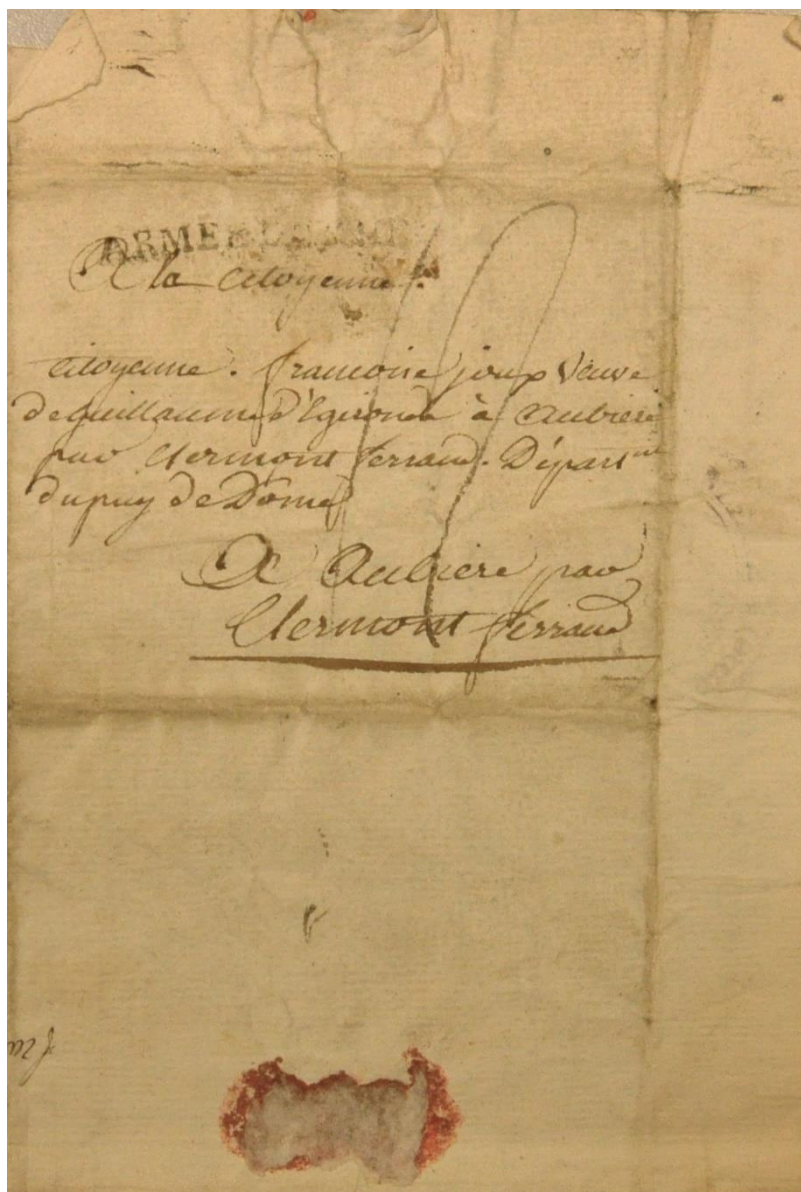 ARMÉE
A la Citoyenne
Citoyenne. francoise joux Veuve
de guillaume d'Egironde à Aubiere
par Clermont ferrand. Départ nt
du puy de Dôme
A Aubiere par
Clermont ferrand